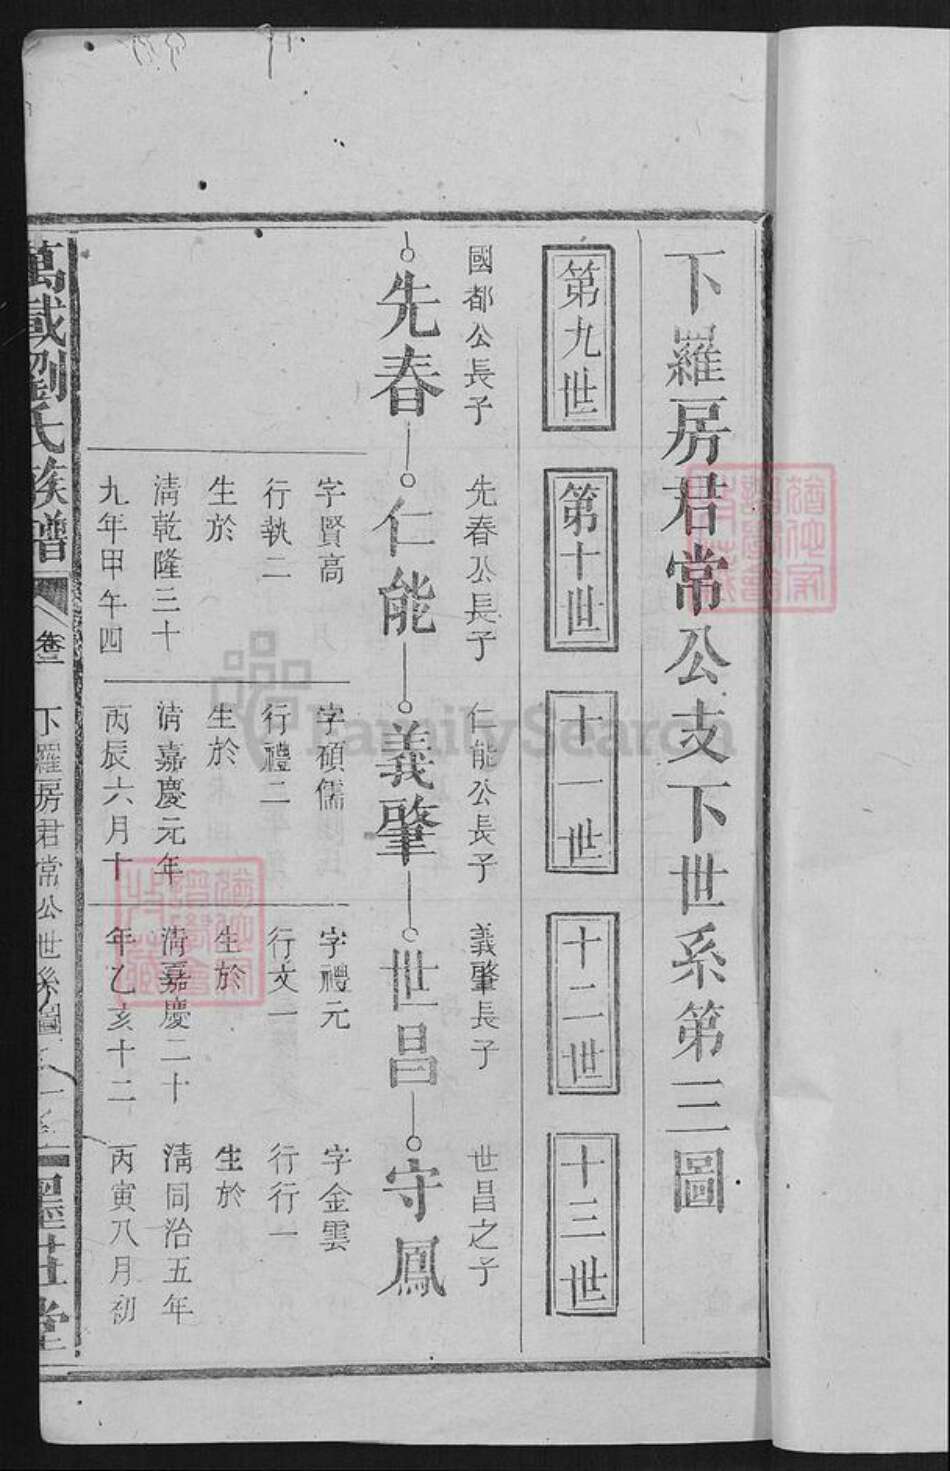 下羅房君常公支下世系第三圖
第九世
第十世
十一世
十二世
十三世
國都公長子
先春
先春公長子
仁能
字賢高
行執二
生於
清乾隆三十
九年甲午四
仁能公長子
義肇
字碩儒
行禮二
生於
清嘉慶元年
丙辰六月十
義肇長子
世昌
字禮元
行文一
生於
清嘉慶二十
年乙亥十二
世昌之子
守鳳
字金雲
行行一
生於
清同治五年
丙寅八月初
萬載劉氏族譜
卷三
下羅房君常公世系圖
墨莊堂
FamilySearch